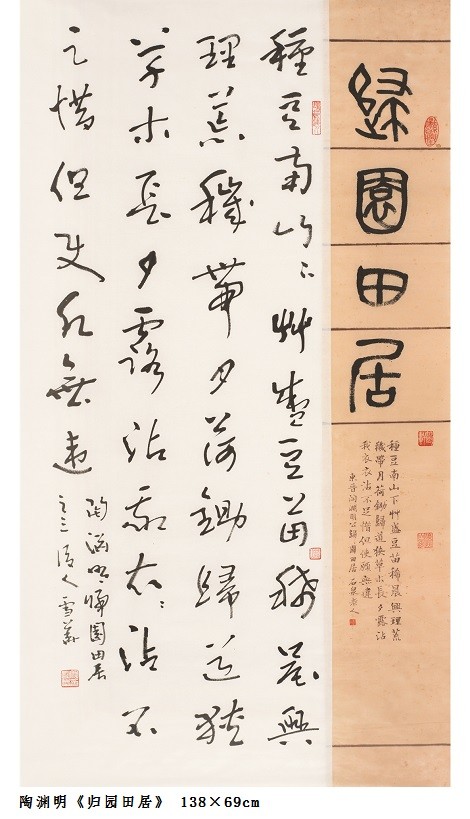 歸園田居
種豆南山下艸盛豆苗稀晨興理荒
穢帶月荷鋤歸道狹草木長夕露沾
我衣衣沾不足惜但使願無違
東晉陶淵明公歸園田居 石泉
種豆南山下艸盛豆苗稀晨興
理荒穢帶月荷鋤歸道狹
草木長夕露沾我衣衣沾不
足惜但使願無違
陶淵明歸園田居
之三
陶渊明《归园田居》 138×69cm